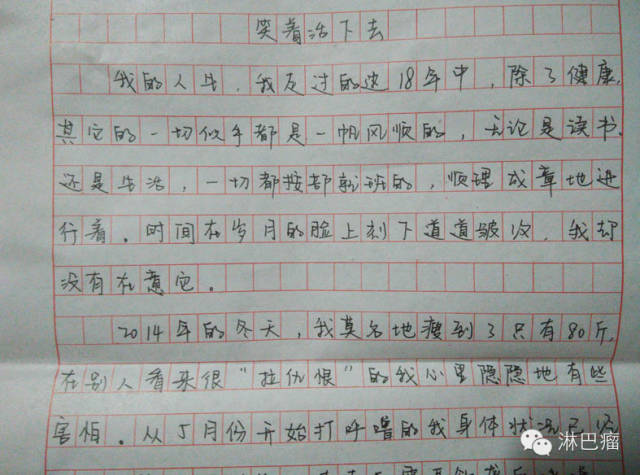 笑着活下去
我的人生，我度过的这18年中，除了健康，
其它的一切似乎都是一帆风顺的，无论是读书，
还是生活，一切都按部就班的，顺理成章地进
行着。时间在岁月的脸上刻下道道皱纹，我却
没有在意它。
2014年的冬天，我莫名地瘦到了只有80斤，
在别人看来很“拉仇恨”的我心里隐隐地有些
害怕。从5月份开始打呼噜的我身体状况已经
淋巴瘤